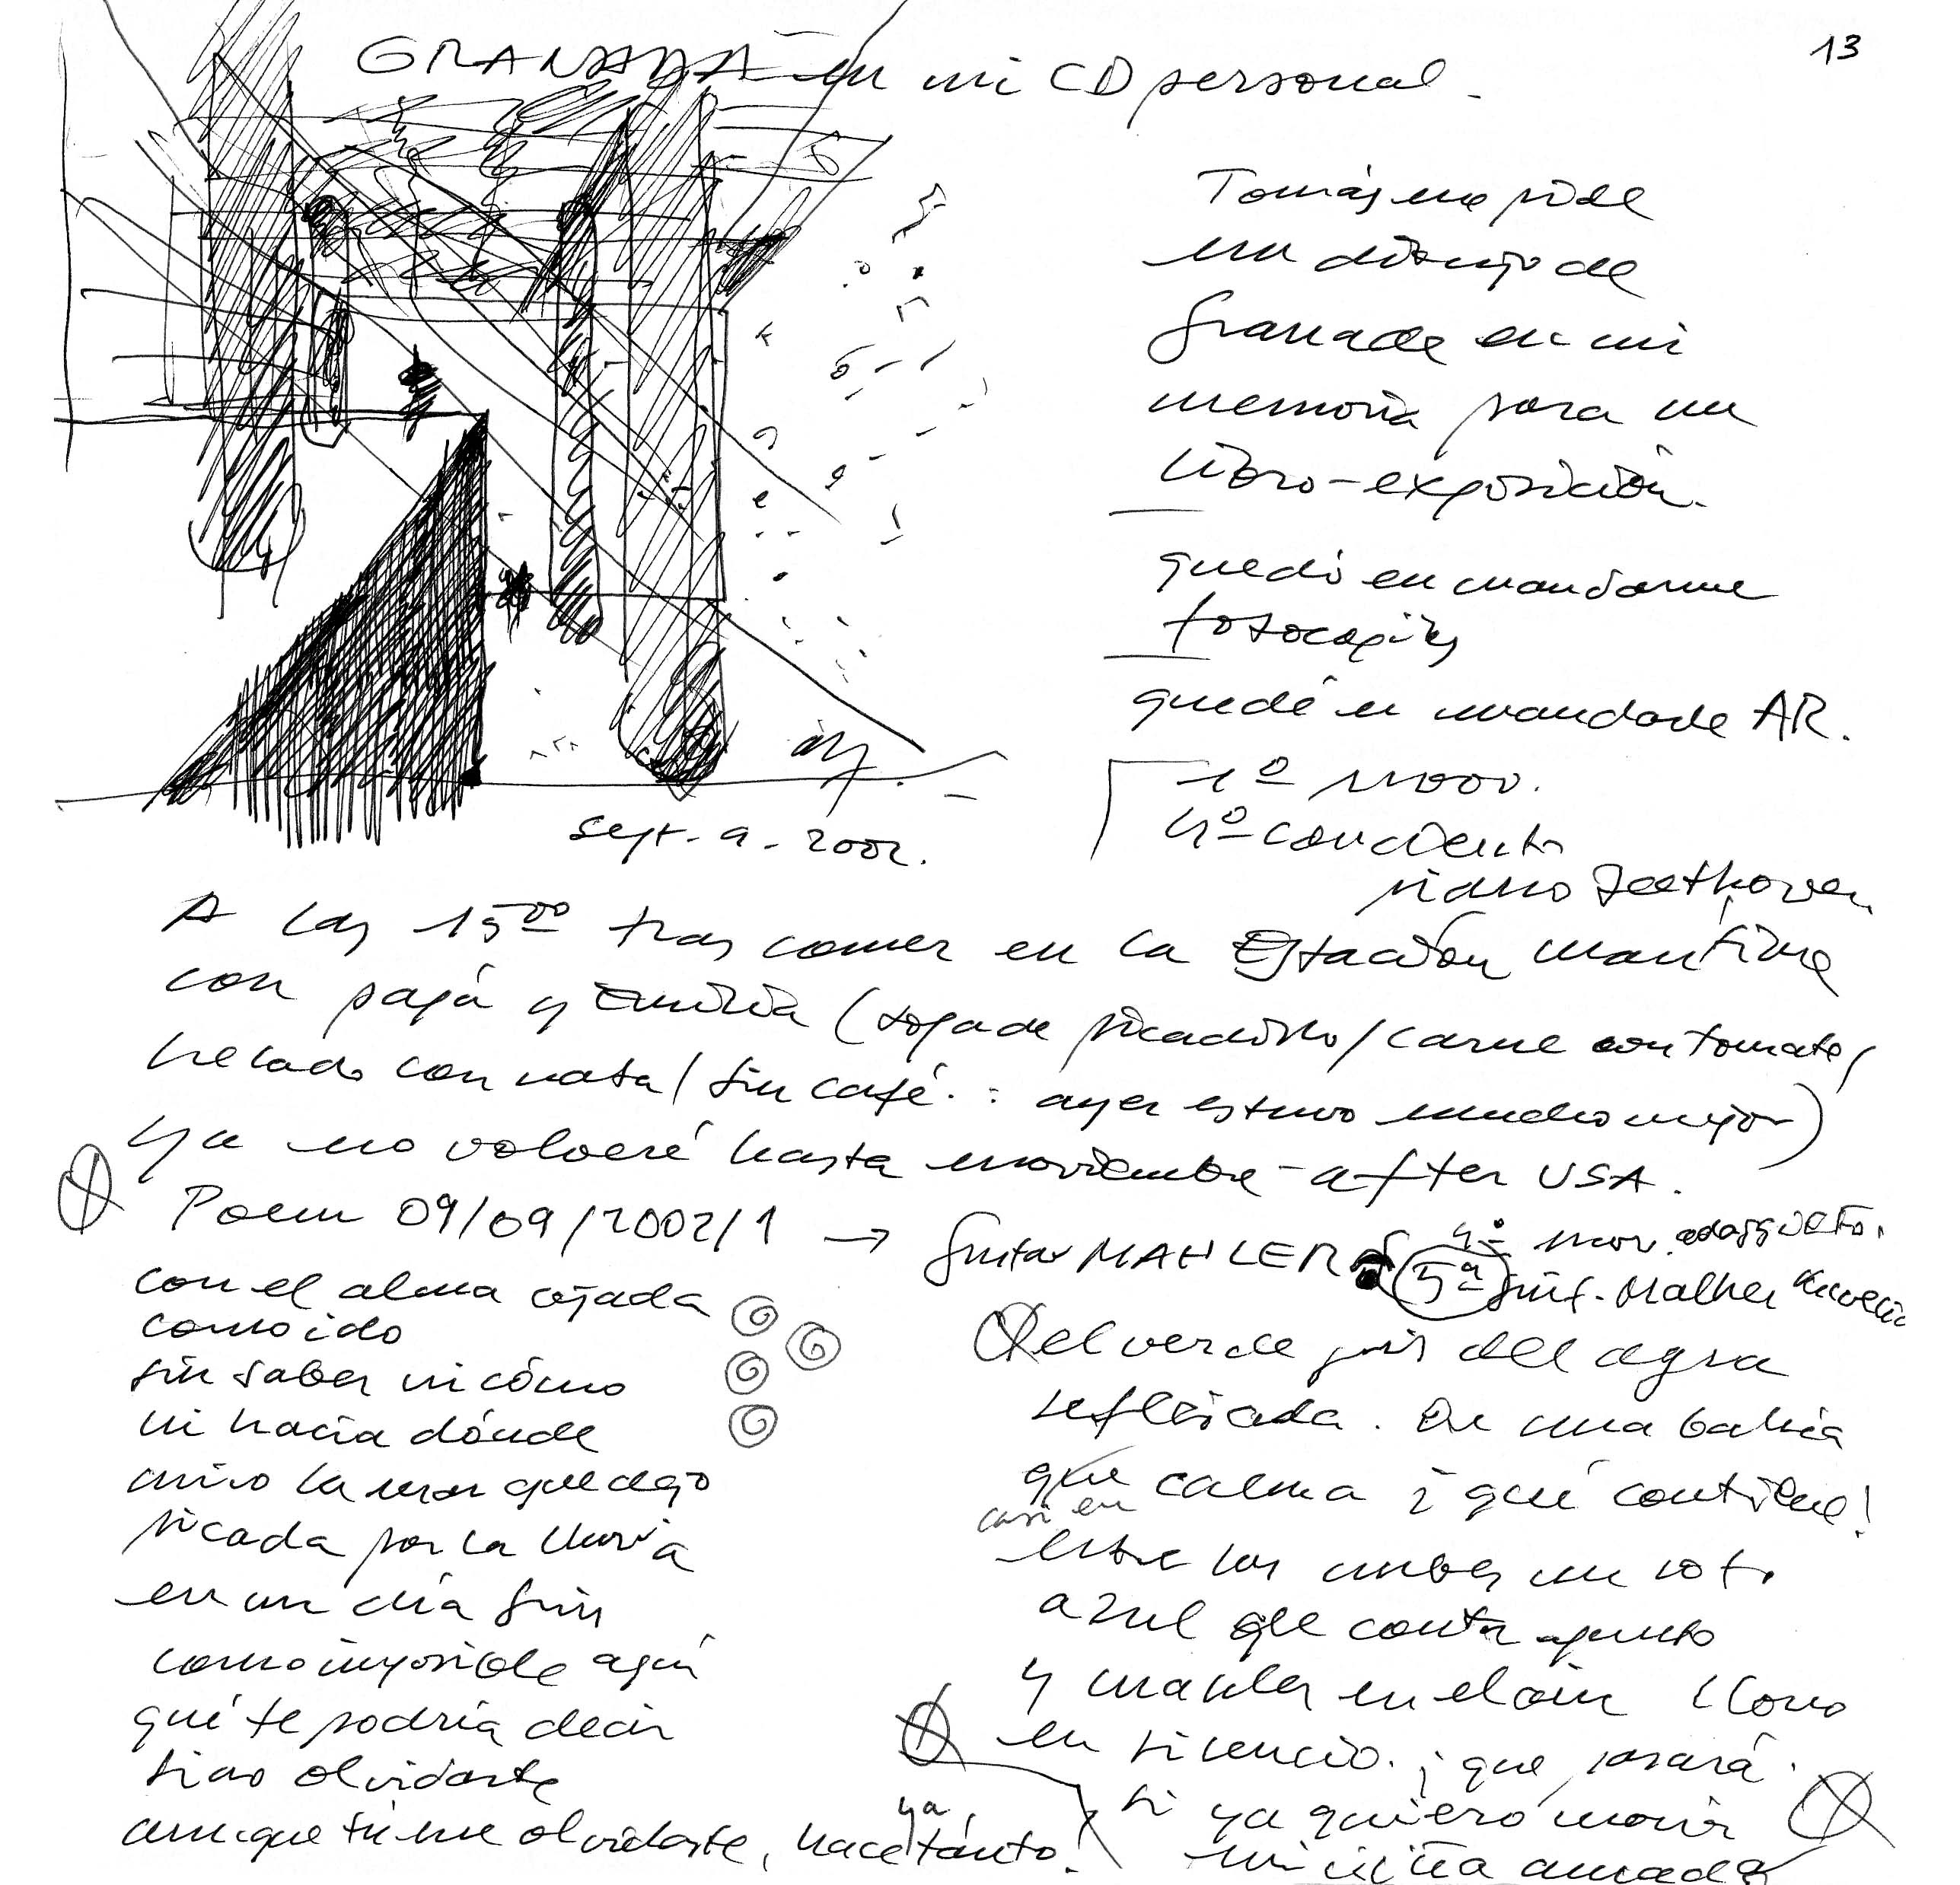 13
GRANADA en mi CD personal.
Tomás me pide
un dibujo de
Granada en mi
memoria para un
libro-exposición.
quedó en mandarme
fotocopias
quedé en mandarle AR.
1º mov.
4º concierto
piano Beethoven.
sept. 9. 2002.
A las 15⁰⁰ tras comer en la Estación Marítima
con papá y Emilia (sopa de picadillo/carne con tomate/
helado con nata/sin café. : ayer estuvo mucho mejor)
ya no volveré hasta noviembre-after USA.
Poem 09/09/2002/1 → Gustav MAHLER 5ª Sinf. Malher
4º mov. adaggieto.
con el alma ajada
como ido
sin saber ni cómo
ni hacia dónde
miro la mar que dejo
picada por la lluvia
en un día gris
como imposible aquí
qué te podría decir
sino olvidarte
aunque tú me olvidaste, hace ya tánto!
el verde gris del agua
reflejada. De una bahía
que calma ¡qué contiene!
casi en
entre las nubes un roto
azul qe contrapunto
y mahler en el aire lloro
en silencio. ¡que pasará.
si ya quiero morir
mi niña amada